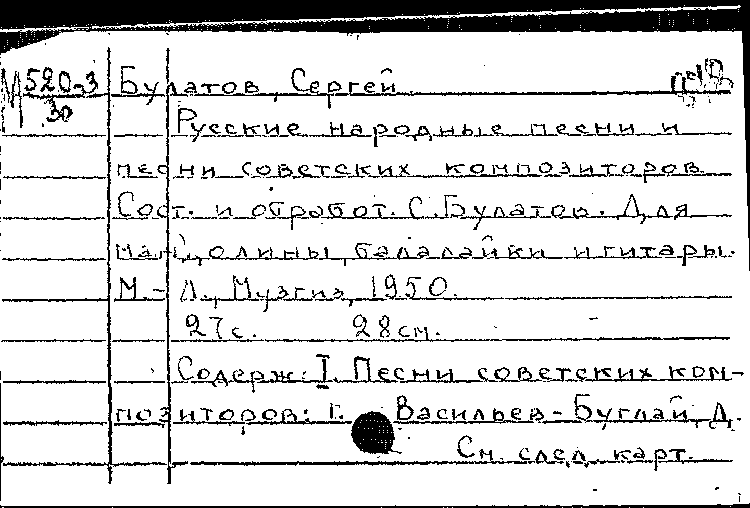 М 520-3 Булатов, Сергей
30
Русские народные песни и
песни советских композиторов
Сост. и обработ. С. Булатов. Для
мандолины, балалайки и гитары.
М.-Л., Музгиз, 1950.
27с. 28см.
Содерж: I. Песни советских ком-
позиторов: 1. Васильев-Буглай, Д.
См. след. карт.